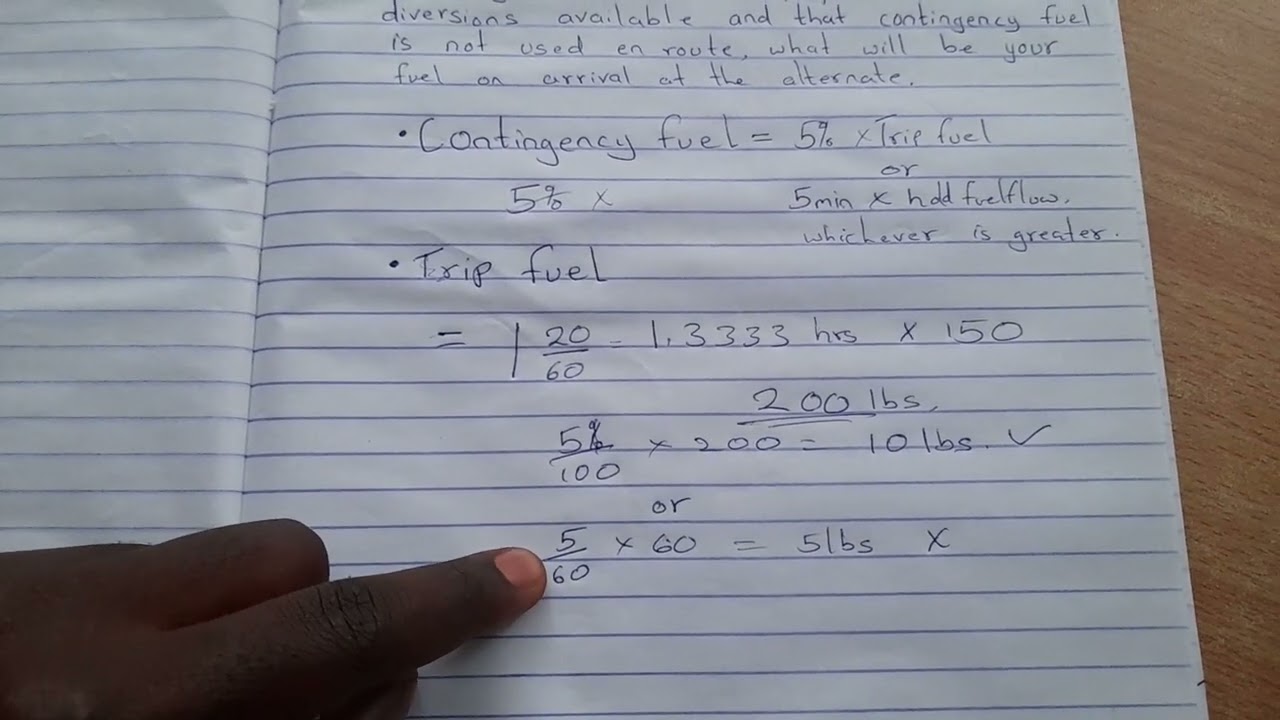 diversions available and that contingency fuel
is not used en route, what will be your
fuel on arrival at the alternate.
• Contingency fuel = 5% × Trip fuel
or
5% × 5min × hold fuelflow,
whichever is greater.
• Trip fuel
= 1 20/60 = 1.3333 hrs × 150
200 lbs,
5%/100 × 200 = 10 lbs. ✓
or
5/60 × 60 = 5lbs X